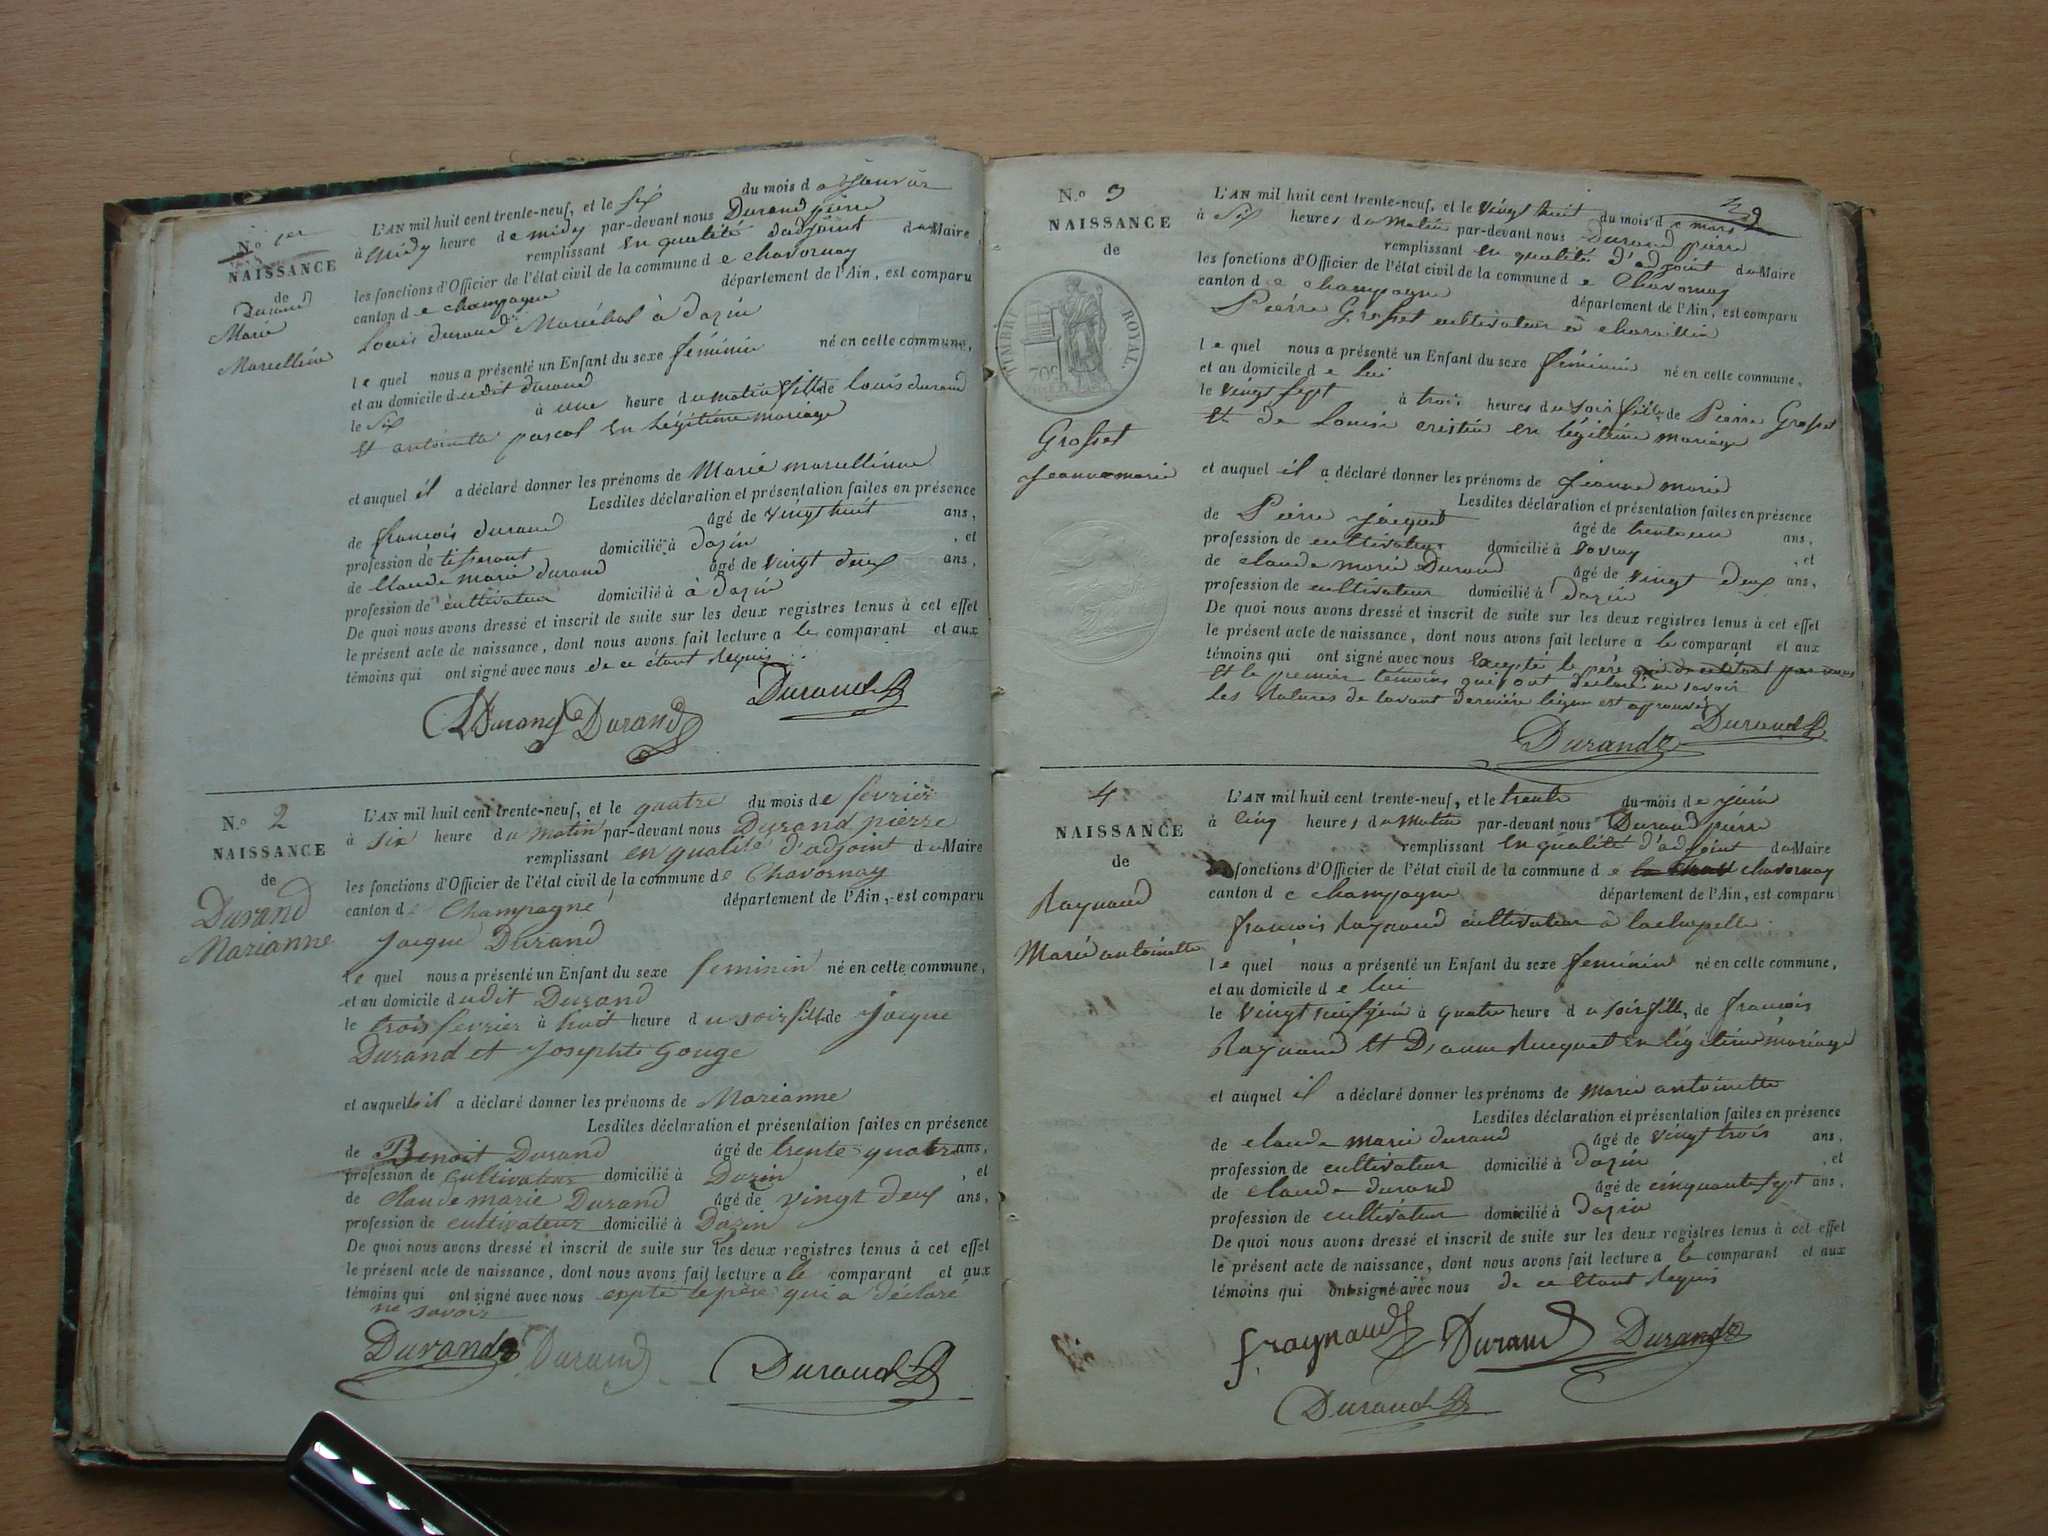 N.o 1er
NAISSANCE
de
Durand
Marie
Marcelline
L'AN mil huit cent trente-neuf, et le six du mois de janvier
à midy heure de midy par-devant nous Durand pierre
remplissant en qualité d'adjoint du Maire
les fonctions d'Officier de l'état civil de la commune de chavornay
canton de champagne département de l'Ain, est comparu
Louis durand Maréchal à dazin
lequel nous a présenté un Enfant du sexe féminin né en cette commune,
et au domicile dudit durand
le six à une heure du matin fille de louis durand
et antoinette pascal en légitime mariage
et auquel il a déclaré donner les prénoms de Marie marcelline
Lesdites déclaration et présentation faites en présence
de françois durand âgé de vingt huit ans,
profession de tisserant domicilié à dazin, et
de Claude marie durand âgé de vingt deux ans,
profession de cultivateur domicilié à à dazin
De quoi nous avons dressé et inscrit de suite sur les deux registres tenus à cet effet
le présent acte de naissance, dont nous avons fait lecture a le comparant et aux
témoins qui ont signé avec nous de ce étant requis
LDurand Durand Durand
N.o 2
NAISSANCE
de
Durand
Marianne
L'AN mil huit cent trente-neuf, et le quatre du mois de fevrier
à six heure du matin par-devant nous Durand pierre
remplissant en qualité d'adjoint du Maire
les fonctions d'Officier de l'état civil de la commune de Chavornay
canton de Champagne département de l'Ain, est comparu
Jacque Durand
lequel nous a présenté un Enfant du sexe feminin né en cette commune,
et au domicile dudit Durand
le trois fevrier à huit heure du soir fille de Jacque
Durand et Josephte Gouge
et auquel il a déclaré donner les prénoms de Marianne
Lesdites déclaration et présentation faites en présence
de Benoit Durand âgé de trente quatre ans,
profession de cultivateur domicilié à Dazin, et
de Claude marie Durand âgé de vingt deux ans,
profession de cultivateur domicilié à Dazin
De quoi nous avons dressé et inscrit de suite sur les deux registres tenus à cet effet
le présent acte de naissance, dont nous avons fait lecture a le comparant et aux
témoins qui ont signé avec nous expté le père qui a déclaré
ne savoir
Durand Durand Durand
N.o 3
NAISSANCE
de
TIMBRE ROYAL
70c
Grosset
Jeanne marie
L'AN mil huit cent trente-neuf, et le vingt huit du mois de mars
à six heures du matin par-devant nous Durand pierre
remplissant en qualité d'adjoint du Maire
les fonctions d'Officier de l'état civil de la commune de Chavornay
canton de champagne département de l'Ain, est comparu
Pierre Grosset cultivateur à charaillin
lequel nous a présenté un Enfant du sexe féminin né en cette commune,
et au domicile de lui
le vingt sept à trois heures du soir fille de Pierre Grosset
et de Louise en légitime mariage
et auquel il a déclaré donner les prénoms de jeanne marie
Lesdites déclaration et présentation faites en présence
de Pierre jacquet âgé de trente un ans,
profession de cultivateur domicilié à vovray, et
de claude marie Durand âgé de vingt deux ans,
profession de cultivateur domicilié à dazin
De quoi nous avons dressé et inscrit de suite sur les deux registres tenus à cet effet
le présent acte de naissance, dont nous avons fait lecture a le comparant et aux
témoins qui ont signé avec nous excepté le père
et le premier témoins qui ont déclaré ne savoir
les Ratures de lavant dernière ligne est approuvé
Durand Durand
4
NAISSANCE
de
Raynaud
Marie antoinette
L'AN mil huit cent trente-neuf, et le trente du mois de juin
à cinq heures du matin par-devant nous Durand pierre
remplissant en qualité d'adjoint du Maire
fonctions d'Officier de l'état civil de la commune de chavornay
canton de champagne département de l'Ain, est comparu
françois Raynaud cultivateur à lachapelle
lequel nous a présenté un Enfant du sexe feminin né en cette commune,
et au domicile de lui
le vingt neuf juin à quatre heure du soir fille, de francois
Raynaud et Dianne en légitime mariage
et auquel il a déclaré donner les prénoms de marie antoinette
Lesdites déclaration et présentation faites en présence
de claude marie durand âgé de vingt trois ans,
profession de cultivateur domicilié à dazin, et
de claude durand âgé de cinquante sept ans,
profession de cultivateur domicilié à dazin
De quoi nous avons dressé et inscrit de suite sur les deux registres tenus à cet effet
le présent acte de naissance, dont nous avons fait lecture a le comparant et aux
témoins qui ont signé avec nous de ce étant requis
fraynaud Durand Durand
Durand